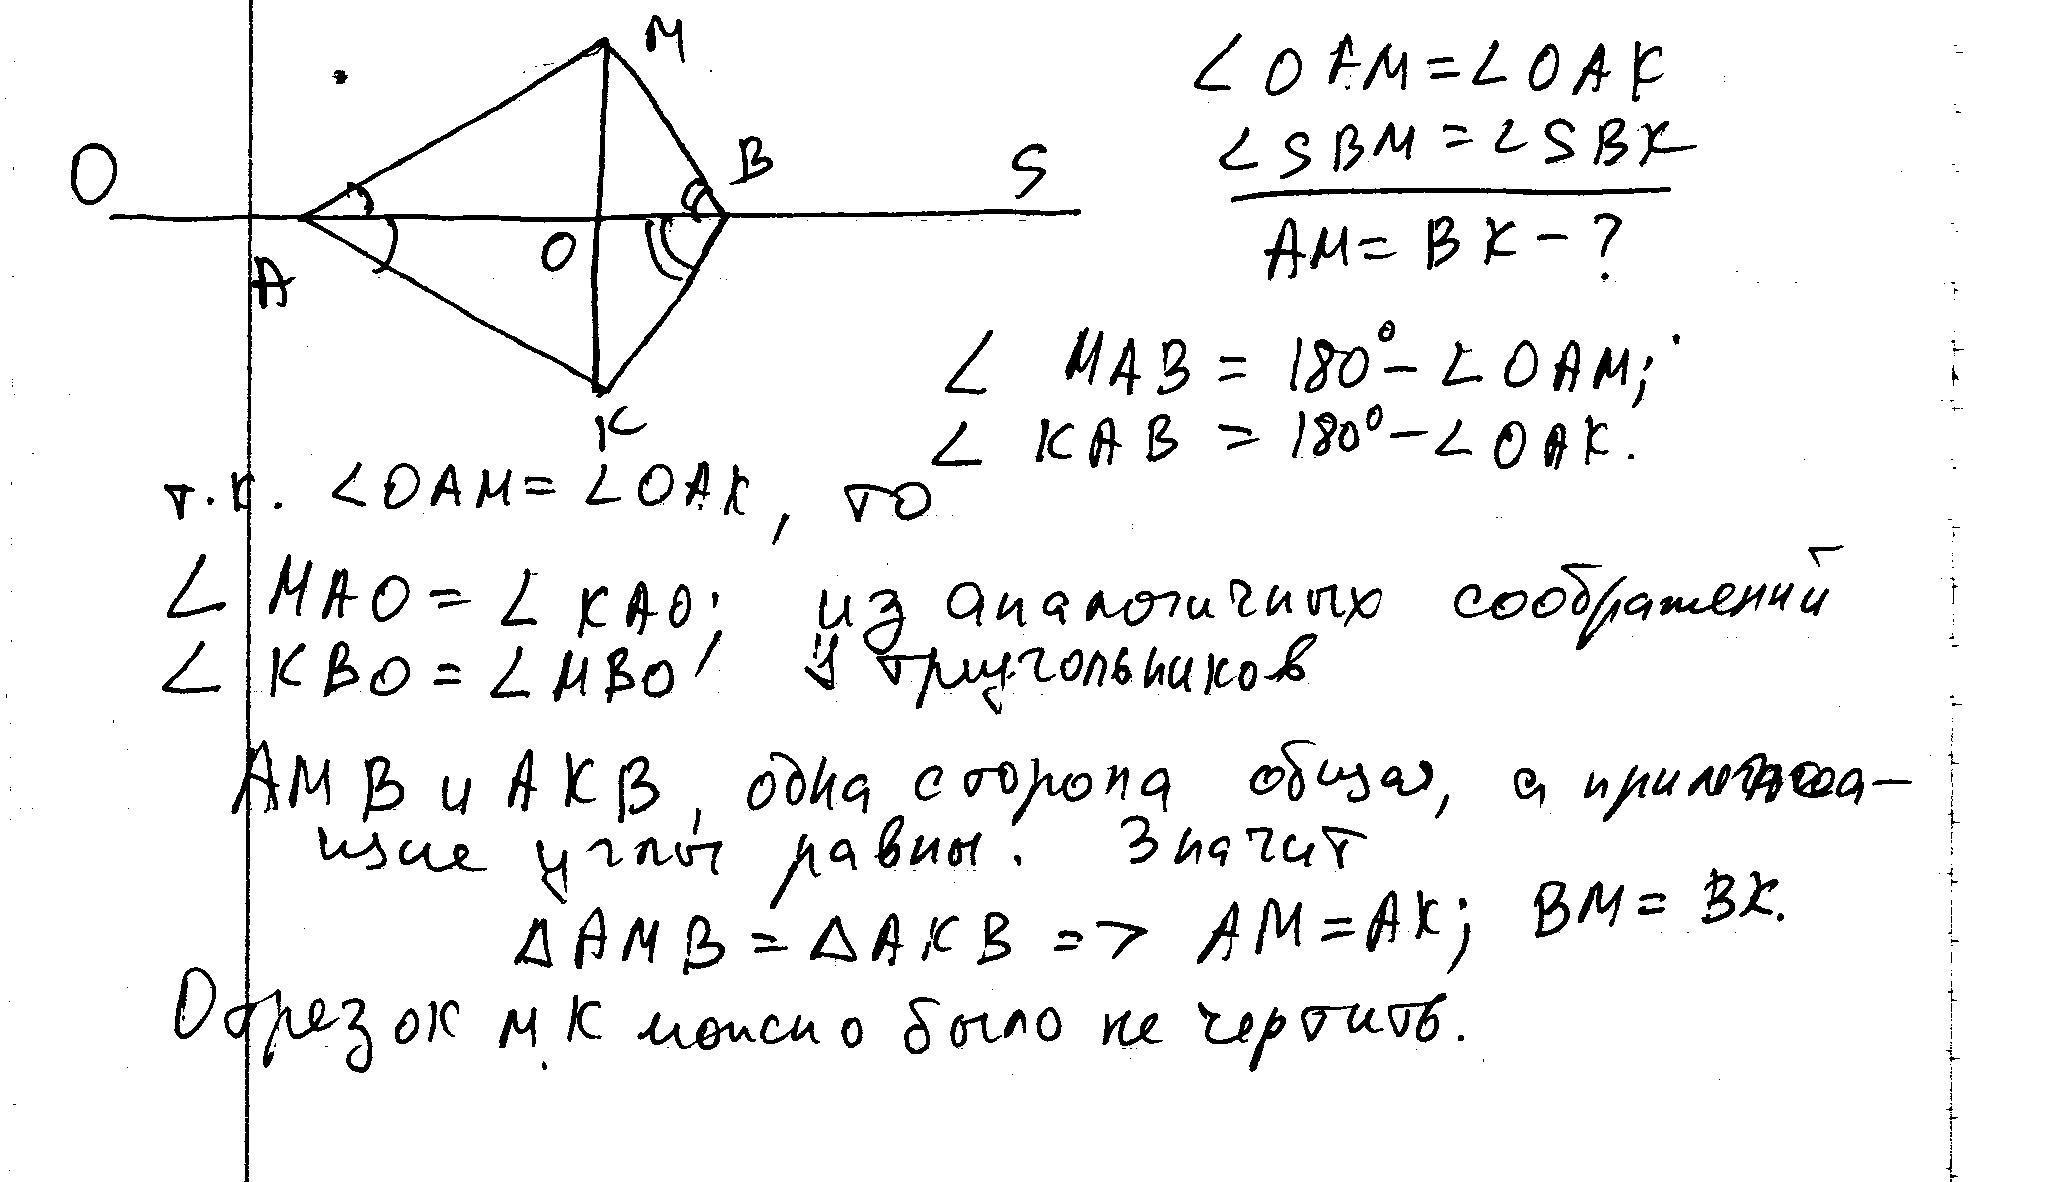 M
O
B
S
A
O
K
∠OAM=∠OAK
∠SBM=∠SBK
AM=BK-?
∠ MAB = 180°-∠OAM;
∠ KAB = 180°-∠OAK.
т.к. ∠OAM=∠OAK, то
∠ MAO=∠ KAO; из аналогичных соображений
∠ KBO=∠MBO, у триугольников
AMB и AKB, одна сторона общая, а прилегаю-
щие углы равны. Значит
ΔAMB=ΔAKB => AM=AK; BM=BK.
Отрезок MK можно было не чертить.